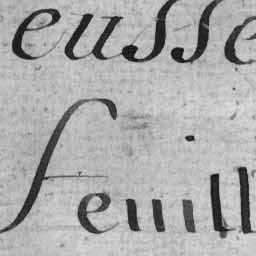 eusse
feuill